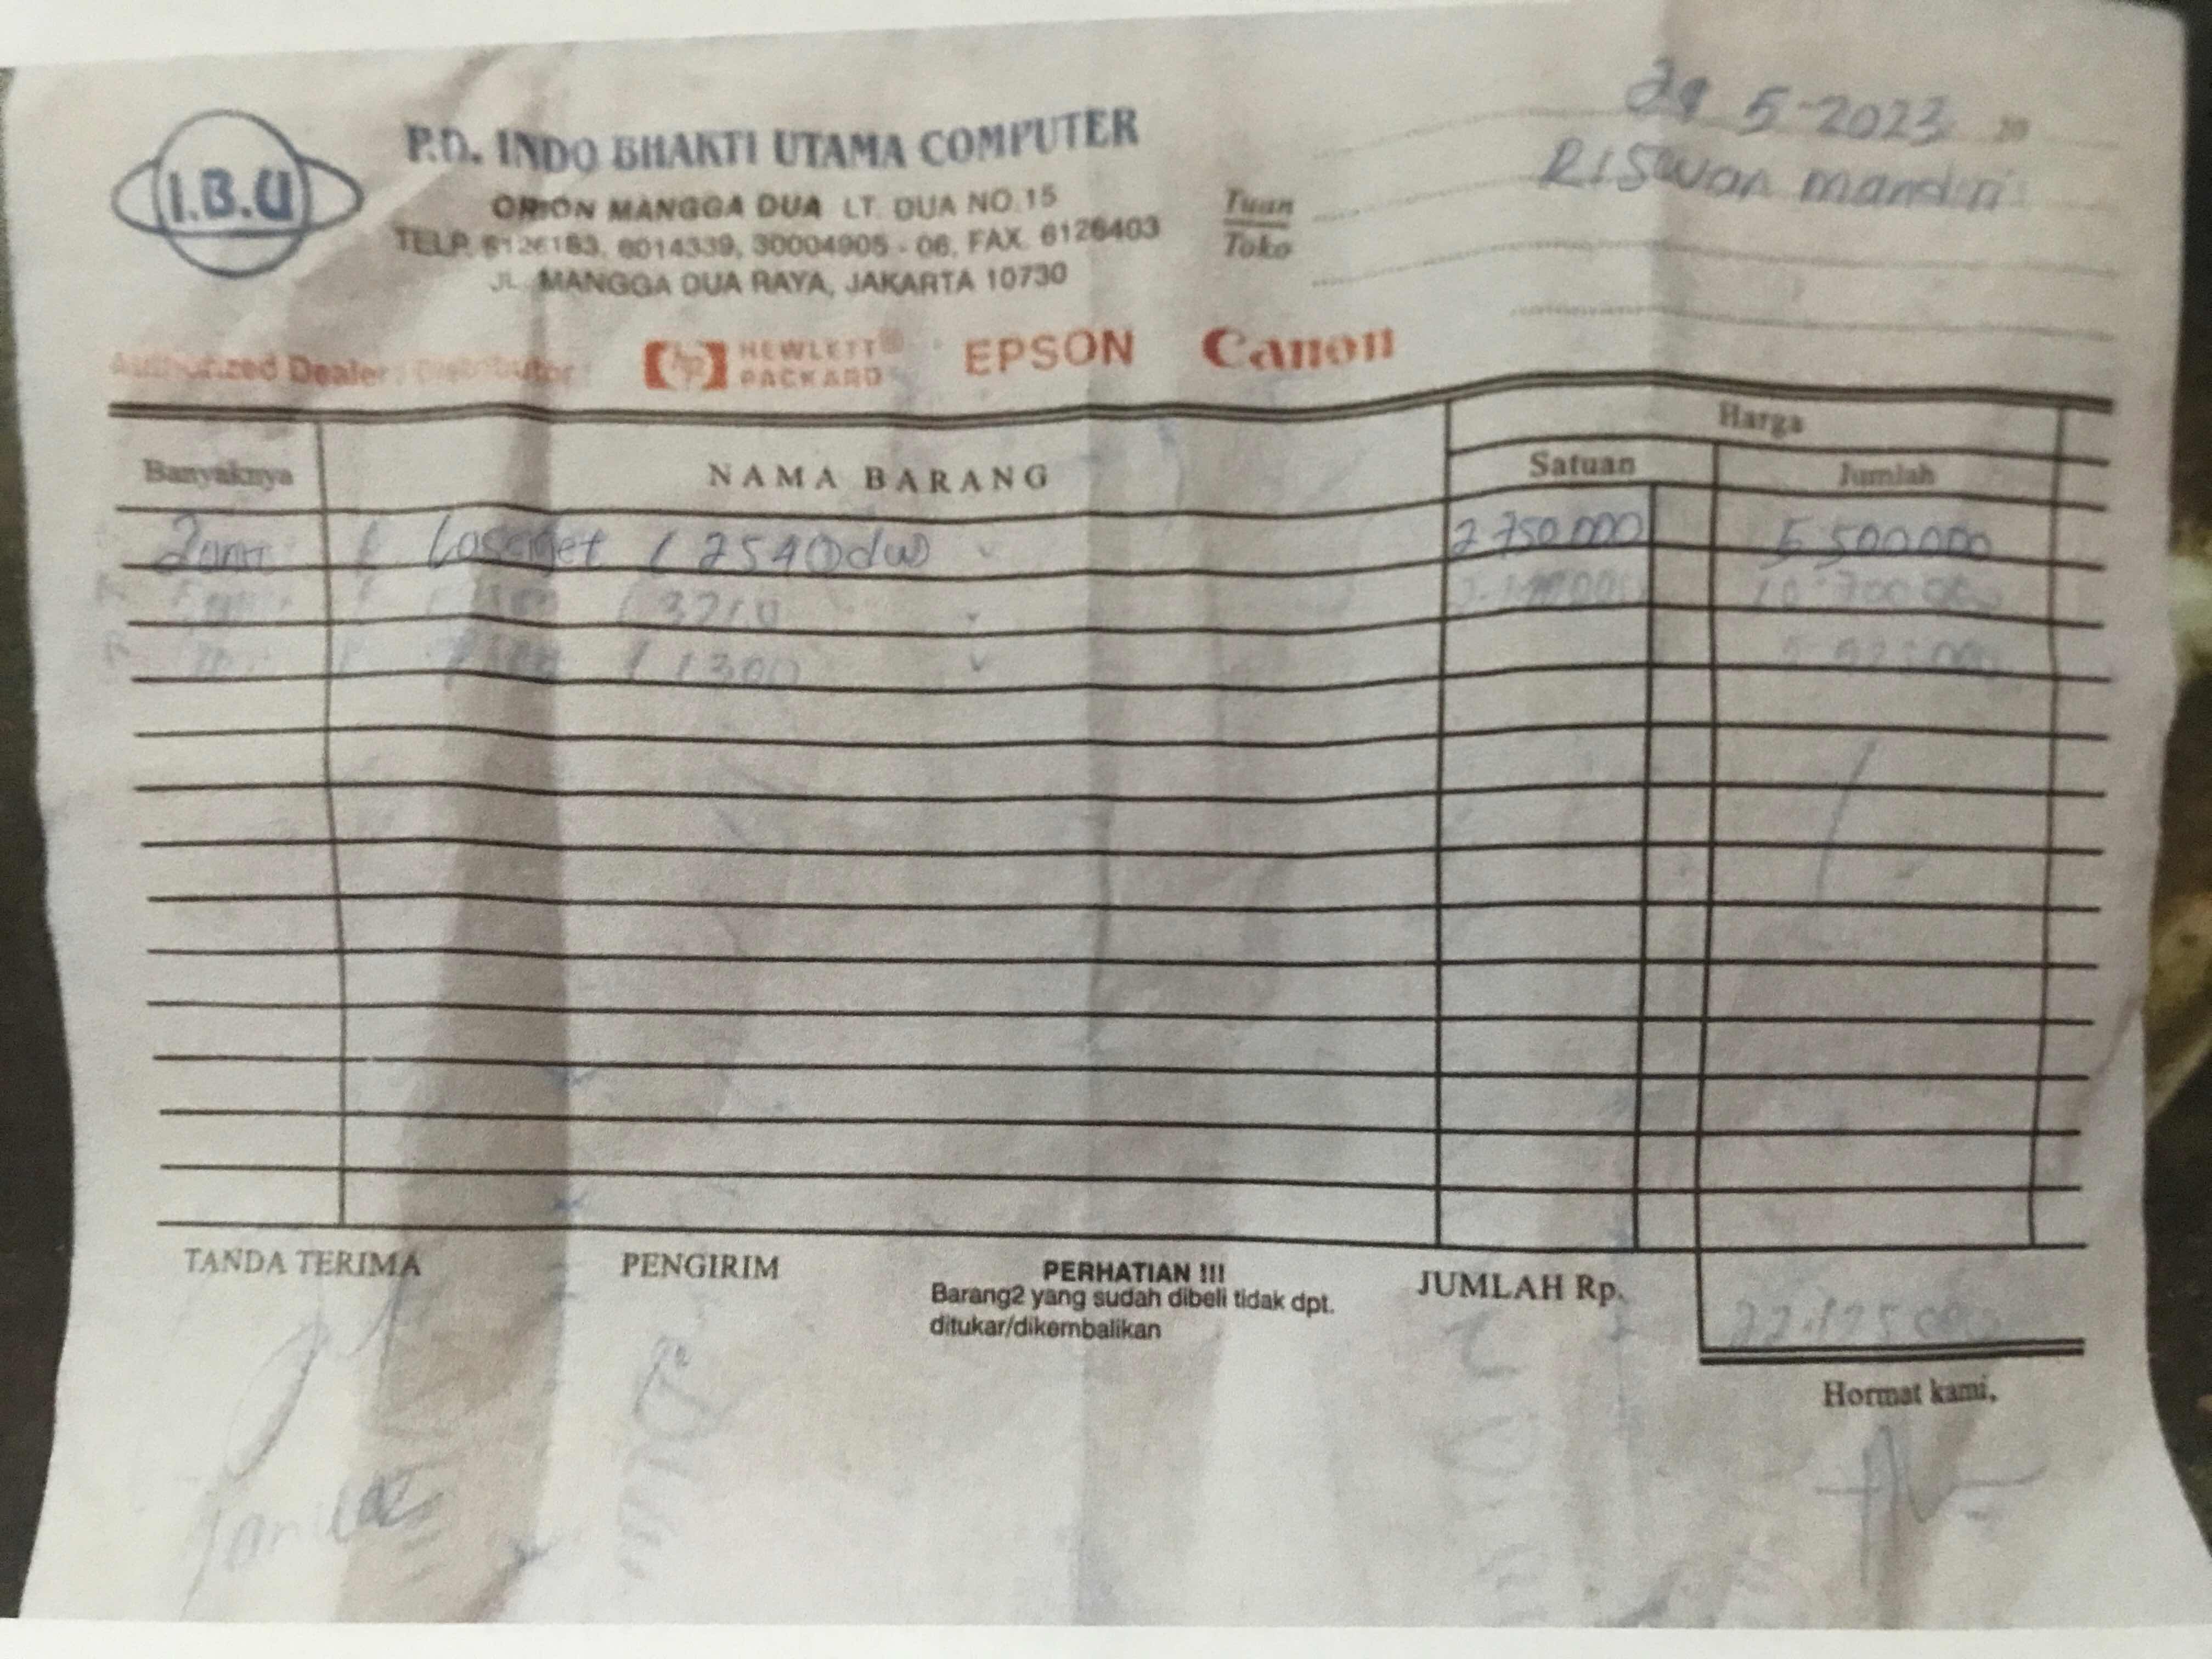 I.B.U
P.D. INDO BHAKTI UTAMA COMPUTER
ORION MANGGA DUA LT. DUA NO.15
TELP. 6126183, 6014339, 30004905 - 06, FAX. 6126403
JL. MANGGA DUA RAYA, JAKARTA 10730
5-2023 20
Riswan mandiri
Tuan
Toko
Authorized Dealer / Distributor
hp HEWLETT® PACKARD EPSON Canon
Harga
Banyaknya NAMA BARANG Satuan Jumlah
Laserjet ( 2540dw) 2 750.000 5 500.000
3210 10.700.000
1300
TANDA TERIMA PENGIRIM PERHATIAN !!! JUMLAH Rp.
Barang2 yang sudah dibeli tidak dpt.
ditukar/dikembalikan
Hormat kami,